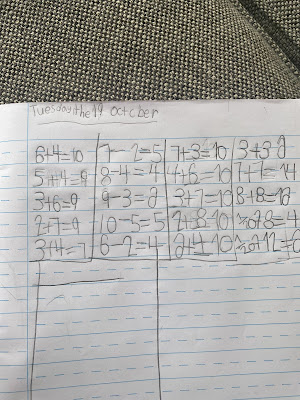 Tuesday the 19 October
6+4=10 7-2=5 7+3=10
5+4=9 8-4=4 4+6=10 7+7=14
3+6=9 9-3=2 3+7=10 8+8=18
2+7=9 10-5=5 2+8=10
3+4=7 6-2=4